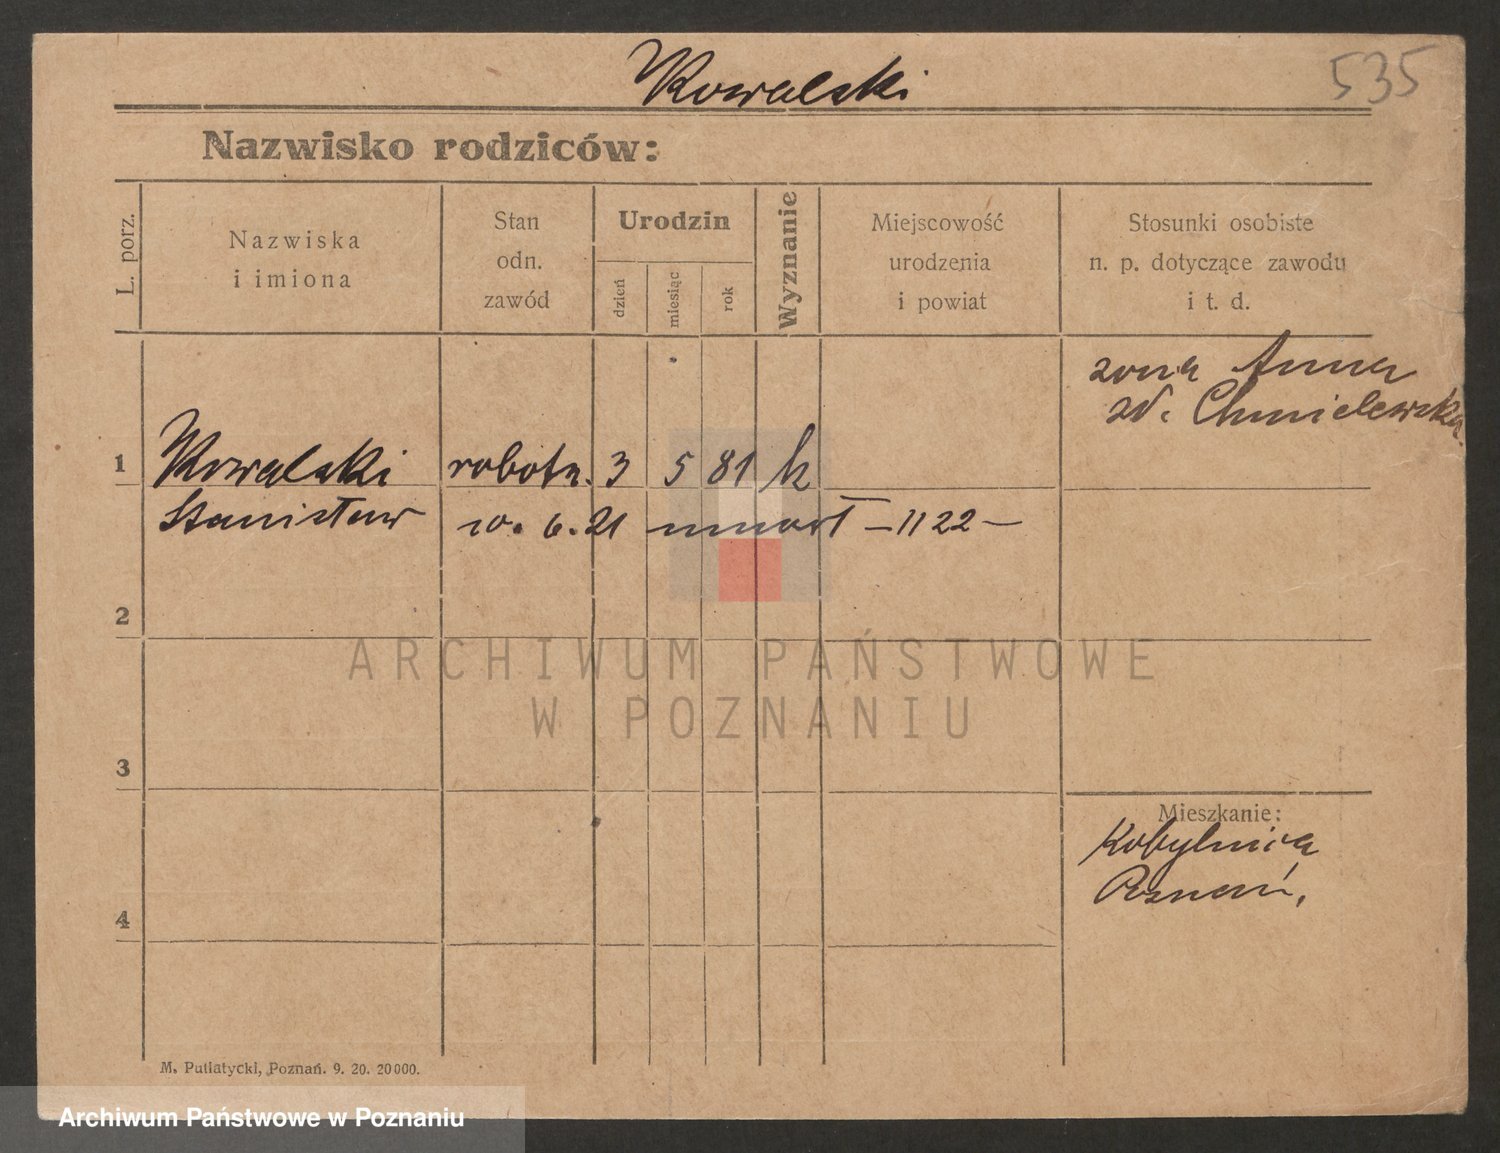 Kowalski
535
Nazwisko rodziców:
L. porz.
Nazwiska
i imiona
Stan
odn.
zawód
Urodzin
dzień
miesiąc
rok
Wyznanie
Miejscowość
urodzenia
i powiat
Stosunki osobiste
n. p. dotyczące zawodu
i t. d.
żona Anna
zd. Chmielewska
1 Kowalski robotn. 3 5 81 k
Stanisław 10. 6. 21 umarł – 11 22 –
2
ARCHIWUM PAŃSTWOWE
W POZNANIU
3
Mieszkanie:
Kobylnica
Poznań,
4
M. Putiatycki, Poznań. 9. 20. 20 000.
Archiwum Państwowe w Poznaniu